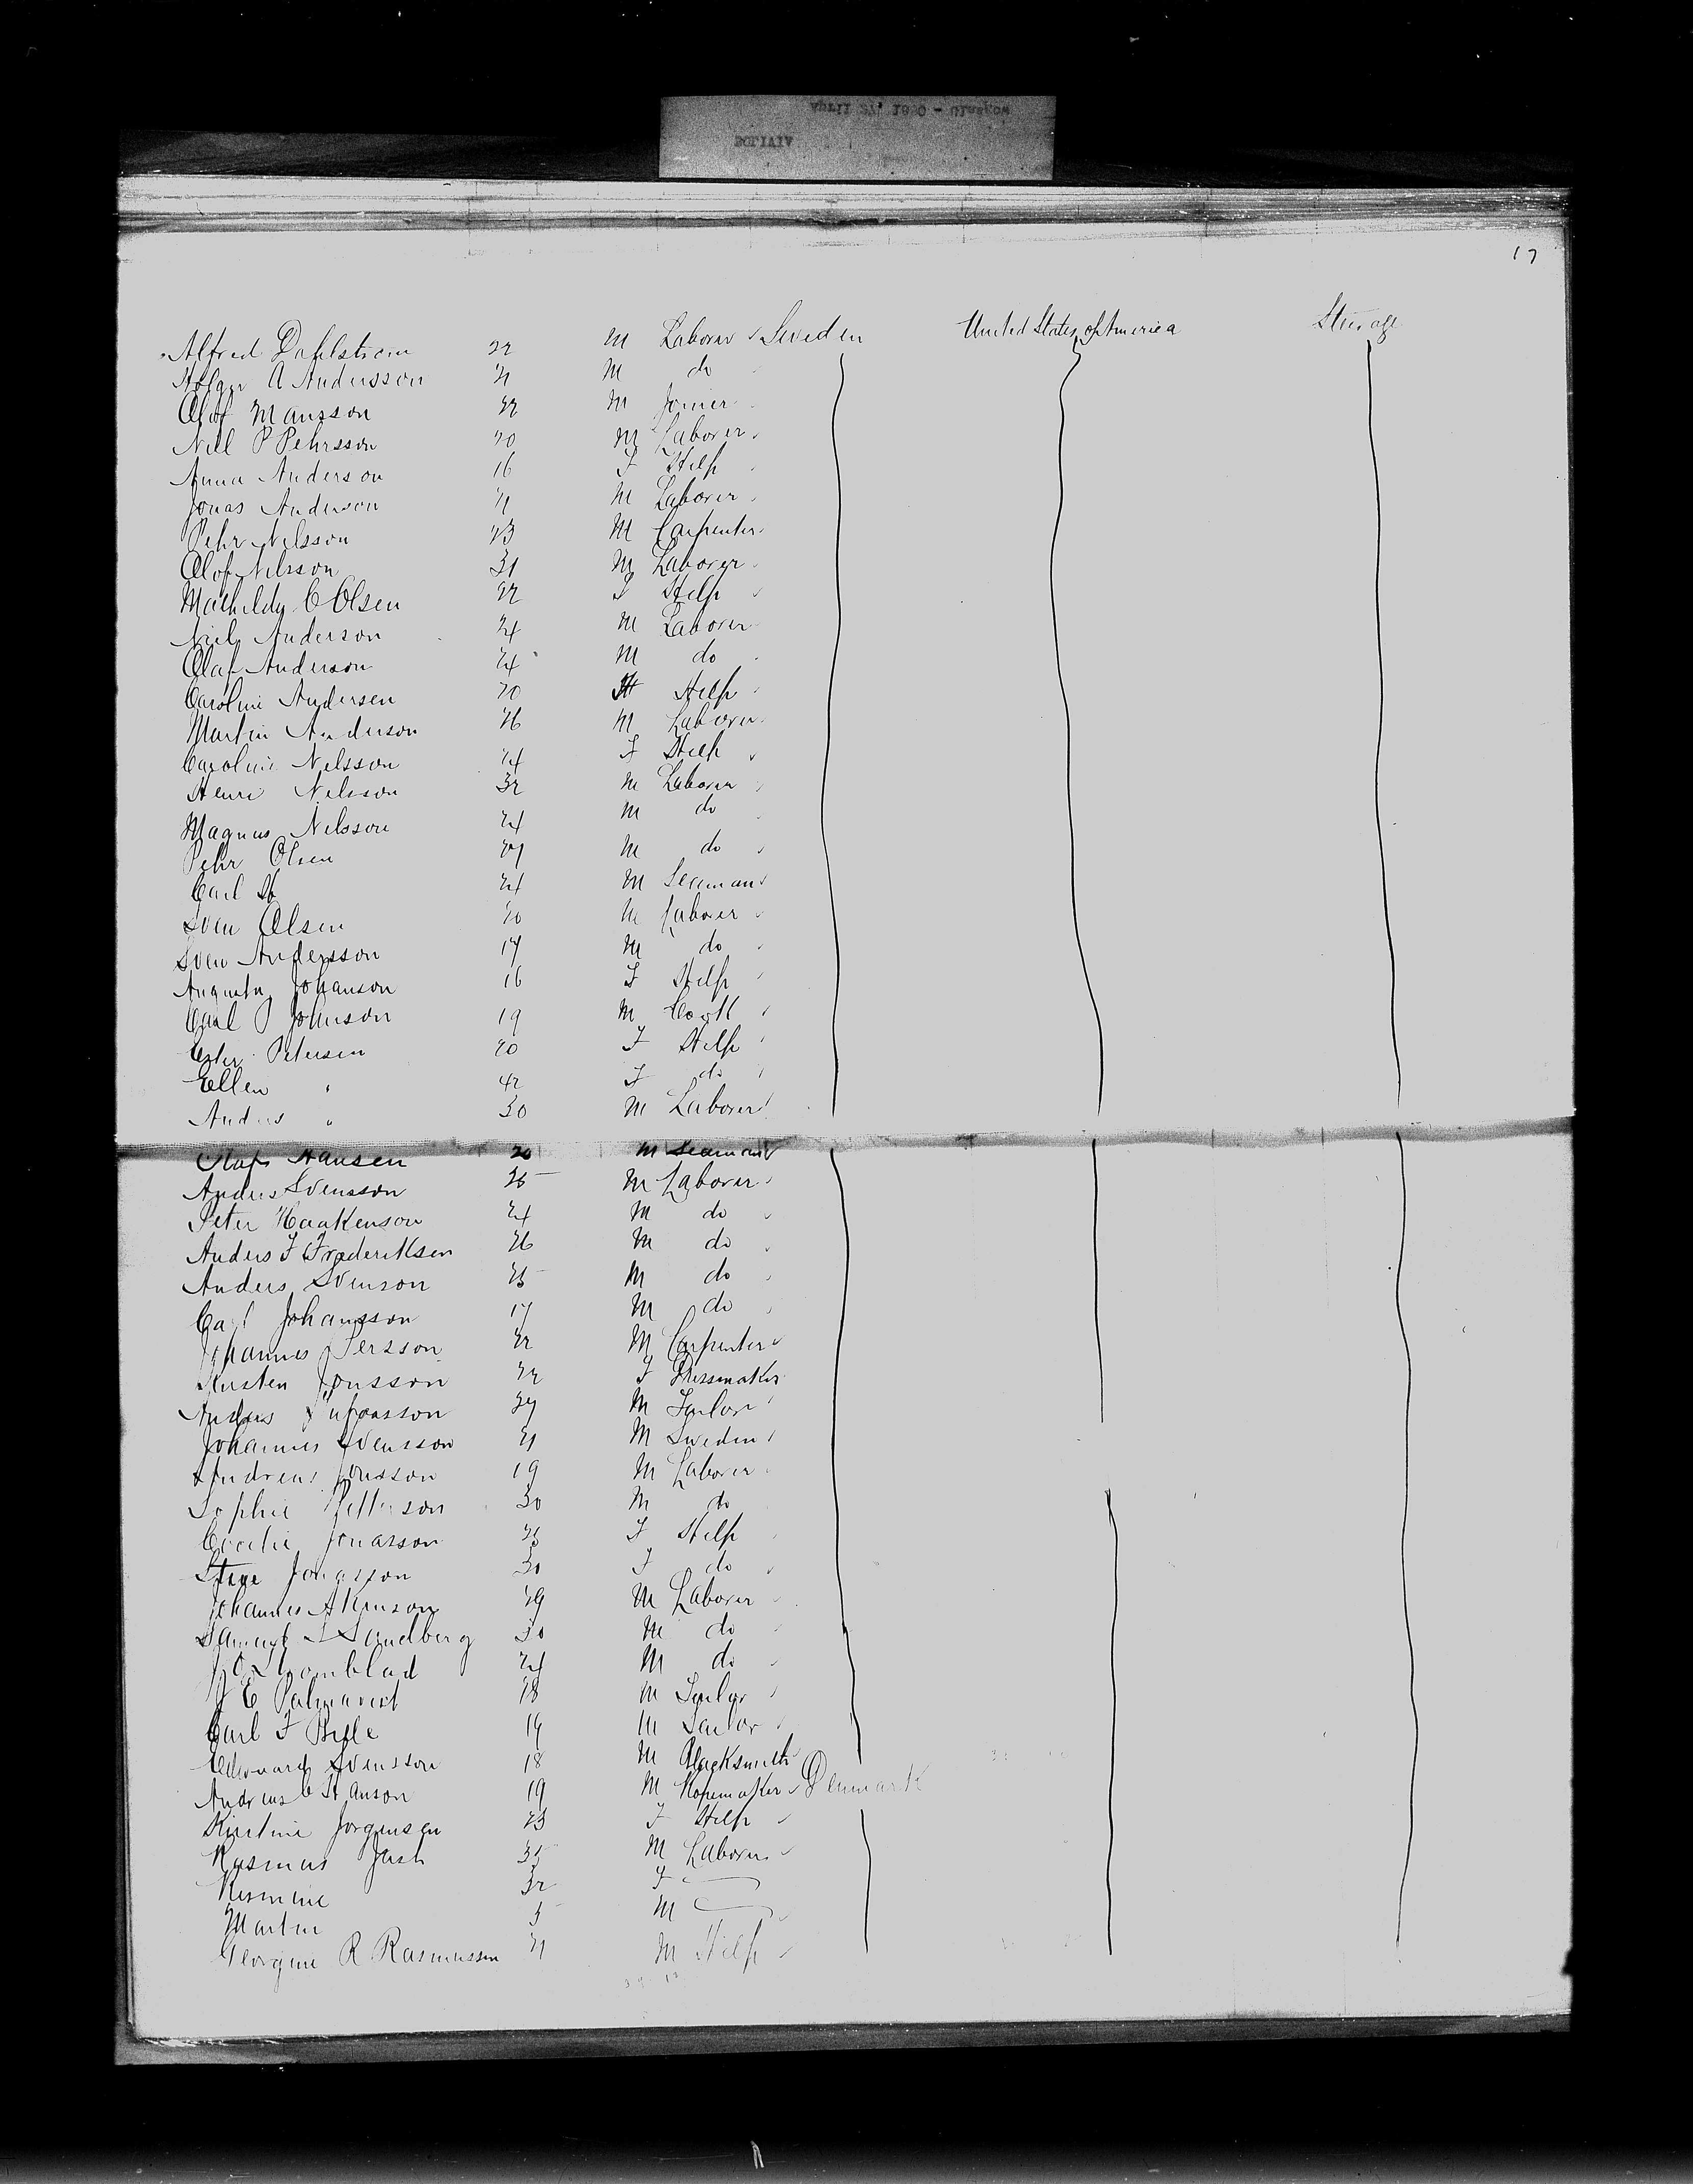 April 27, 1880 - Glasgow
BOLIVIA
17
Alfred Dahlstrom 22 M Laborer Sweden United States of America Steerage
Holger A Andersson 21 M do
Olof Mansson 22 M Joiner
Nill P Pehrsson 20 M Laborer
Anna Anderson 16 F Help
Jonas Anderson 21 M Laborer
Pehr Nilsson 23 M Carpenter
Olof Nilsson 31 M Laborer
Mathilda C Olsen 22 F Help
Niels Anderson 24 M Laborer
Olaf Anderson 24 M do
Caroline Andersen 20 Help
Martin Anderson 26 M Laborer
Caroline Nelsson 24 F Help
Henri Nelsson 32 M Laborer
Magnus Nelsson 24 M do
Pehr Olsen 27 M do
Carl Do 24 M Seaman
Sven Olsen 20 M Laborer
Sven Andersson 17 M do
Augusta Johanson 16 F Help
Carl P Johnson 19 M Cook
Petersen 20 F Help
Ellen " 42 F do
Anders " 30 M Laborer
Olof Hansen 20 M Seaman
Andres Svensson 25 M Laborer
Peter Haakenson 24 M do
Anders F Frederiksen 26 M do
Anders Svenson 25 M do
Carl Johansson 17 M do
Johannes Persson 22 M Carpenter
Kersten Jonsson 22 F Dressmaker
Anders 27 M Tailor
Johannes Svensson 21 M Sweden
Andreas Jonsson 19 M Laborer
Sophie Petterson 30 M do
Cecilie Jonasson 26 F Help
Jonasson 30 F do
Johannes Akerson 29 M Laborer
Samuel S Sandberg 30 M do
J O Stromblad 24 M do
J E Palmqvist 18 M Tailor
Carl F Bille 19 M Tailor
Edward Svensson 18 M Blacksmith
Andreas C Hanson 19 M Ropemaker Denmark
Kirstine Jorgensen 23 F Help
Rasmus Jash 35 M Laborer
Rismine 32 F
Martin 5 M
Georgine R Rasmussen 21 M Help